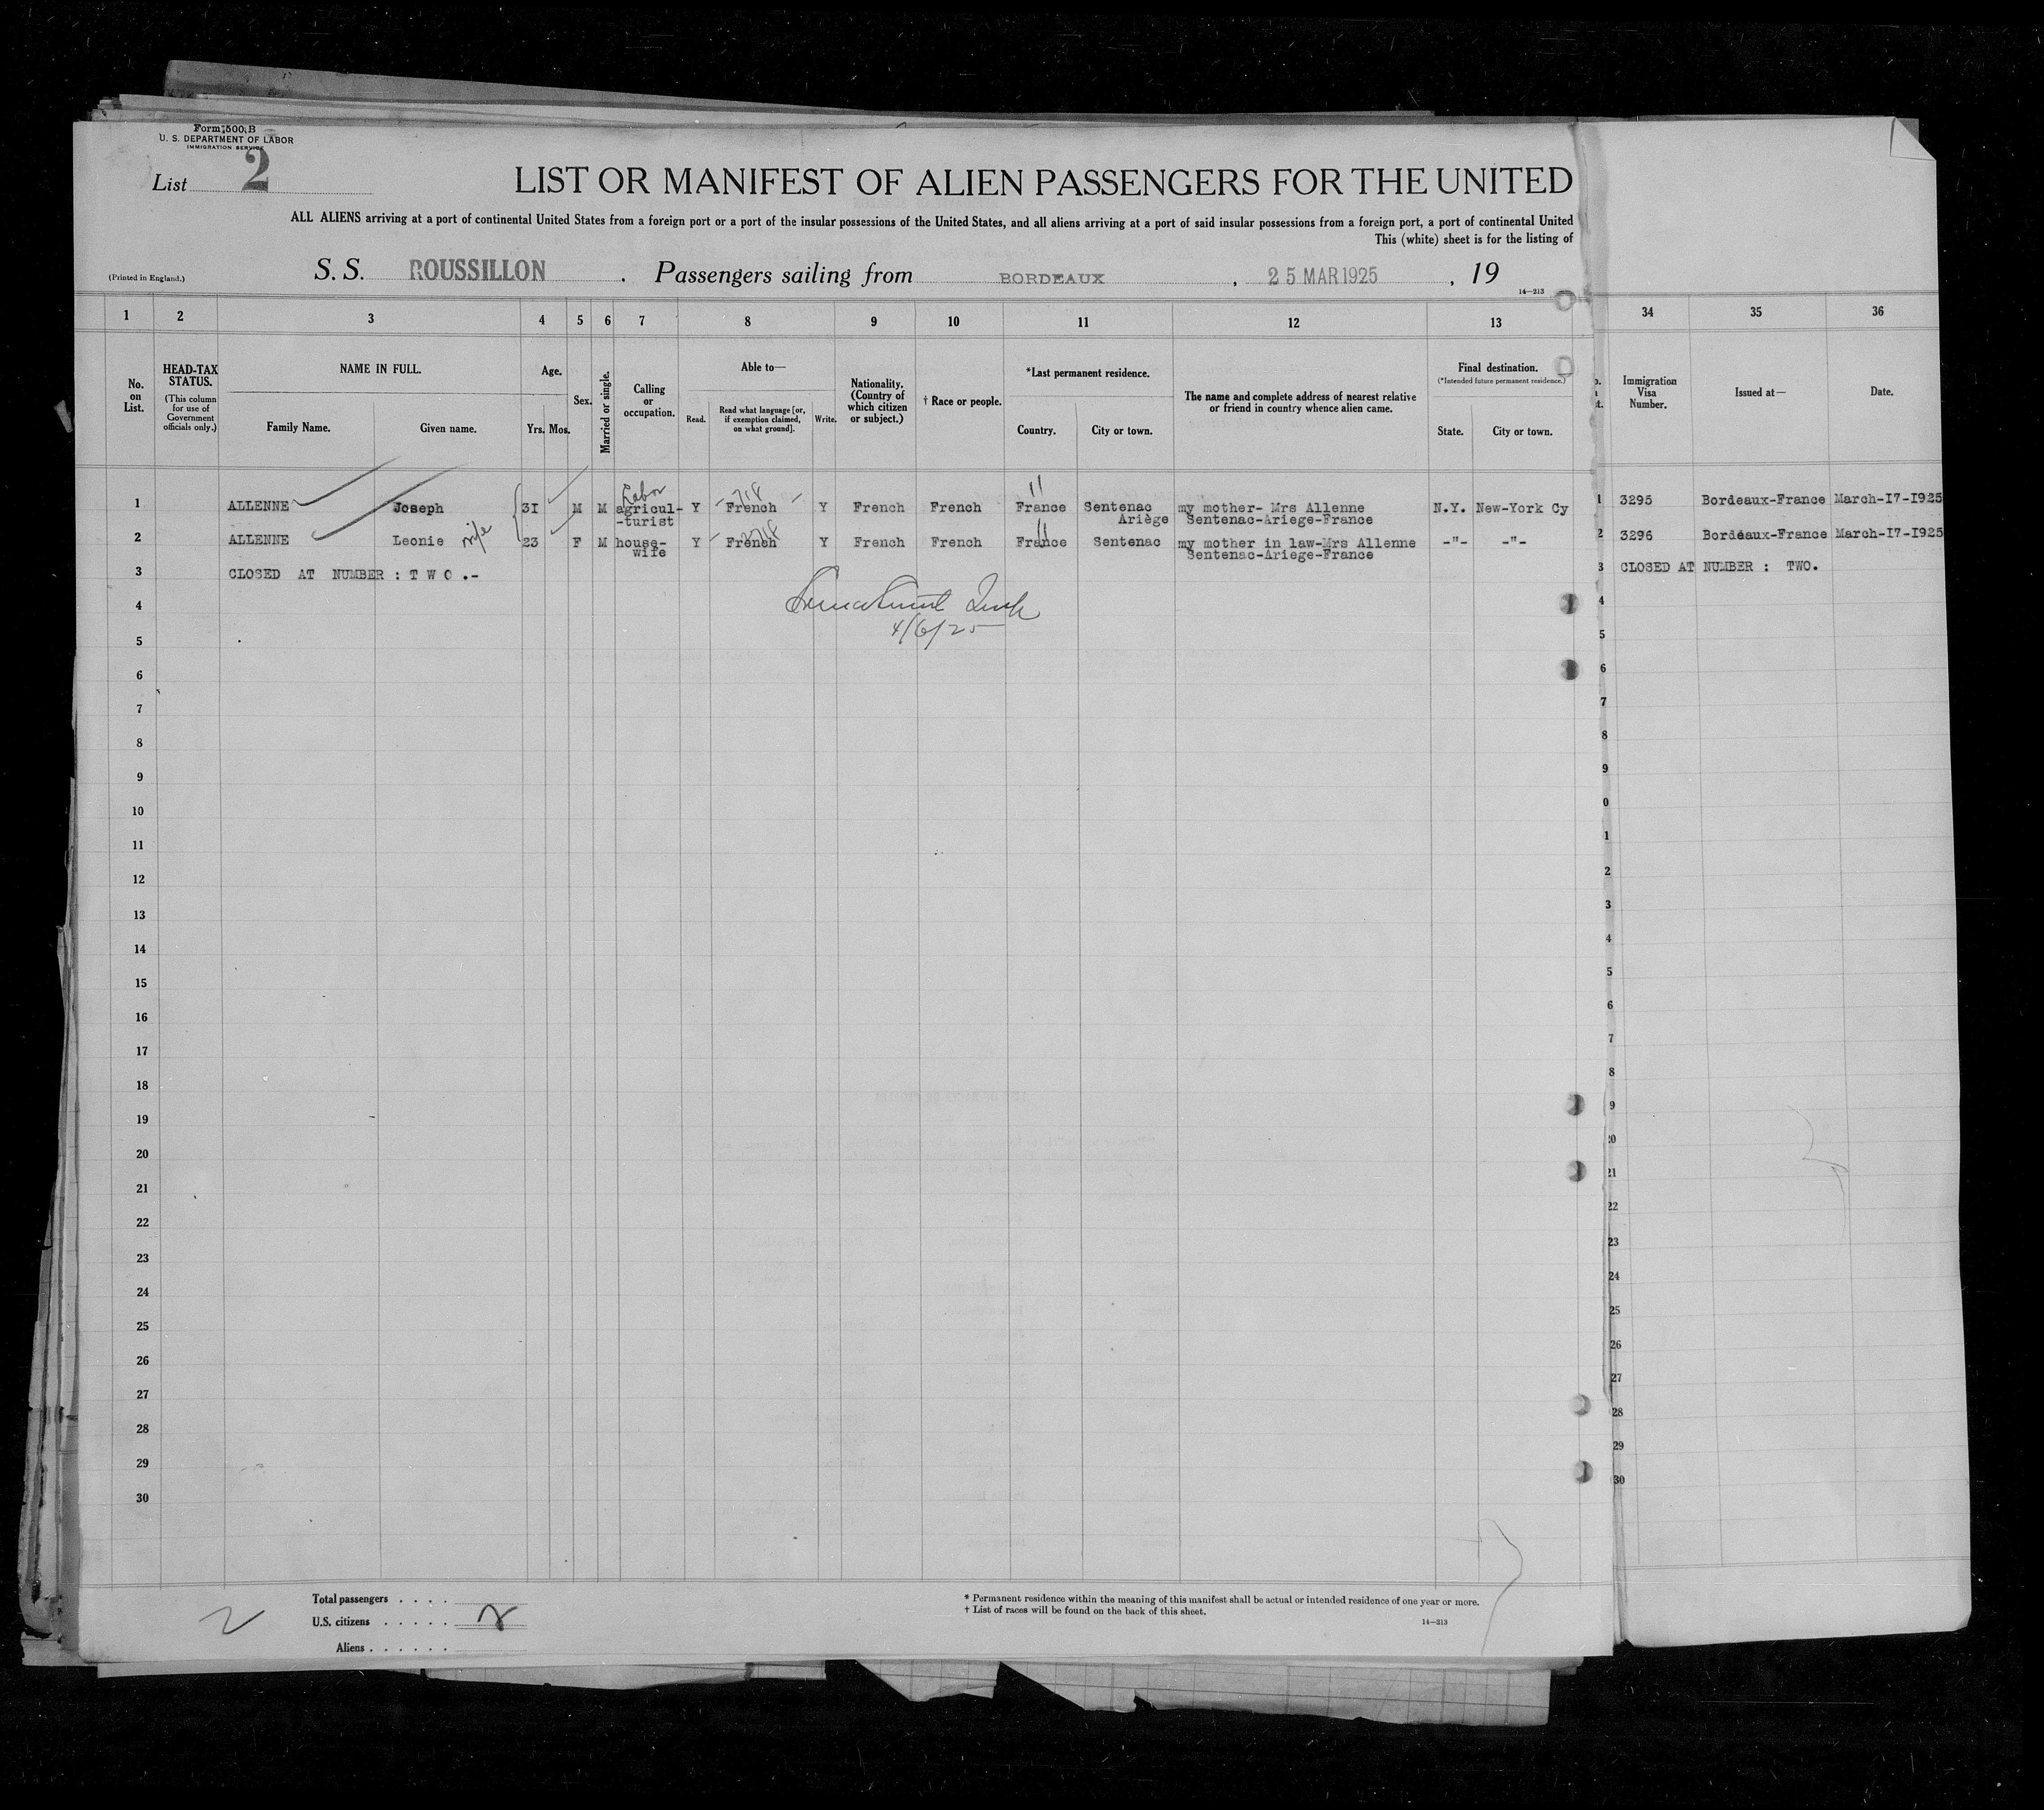 Form 500 B
U. S. DEPARTMENT OF LABOR
IMMIGRATION SERVICE
List 2
LIST OR MANIFEST OF ALIEN PASSENGERS FOR THE UNITED
ALL ALIENS arriving at a port of continental United States from a foreign port or a port of the insular possessions of the United States, and all aliens arriving at a port of said insular possessions from a foreign port, a port of continental United
This (white) sheet is for the listing of
(Printed in England.)
S. S. ROUSSILLON . Passengers sailing from BORDEAUX , 25 MAR 1925 , 19
14—213
1 2 3 4 5 6 7 8 9 10 11 12 13 34 35 36
No. on List.
HEAD-TAX STATUS.
(This column for use of Government officials only.)
NAME IN FULL.
Family Name. Given name.
Age.
Yrs. Mos.
Sex.
Married or single.
Calling or occupation.
Able to—
Read. Read what language [or, if exemption claimed, on what ground]. Write.
Nationality. (Country of which citizen or subject.)
† Race or people.
*Last permanent residence.
Country. City or town.
The name and complete address of nearest relative or friend in country whence alien came.
Final destination.
(*Intended future permanent residence.)
State. City or town.
Immigration Visa Number.
Issued at—
Date.
Labor 718 11
1 ALLENNE Joseph 31 M M agricul- Y French Y French French France Sentenac my mother- Mrs Allenne N.Y. New-York Cy 1 3295 Bordeaux-France March-I7-I925
-turist Ariège Sentenac-Ariege-France
2718 11
2 ALLENNE Leonie wife 23 F M house- Y French Y French French France Sentenac my mother in law-Mrs Allenne -"- -"- 2 3296 Bordeaux-France March-I7-I925
wife Sentenac-Ariege-France
3 CLOSED AT NUMBER : T W O .- 3 CLOSED AT NUMBER : TWO.
4 4
4/6/25
5 5
6 6
7 7
8 8
9 9
10 0
11 1
12 2
13 3
14 4
15 5
16 6
17 7
18 8
19 9
20 20
21 21
22 22
23 23
24 24
25 25
26 26
27 27
28 28
29 29
30 30
2
Total passengers . . . .
U.S. citizens . . . . .
Aliens . . . . . .
* Permanent residence within the meaning of this manifest shall be actual or intended residence of one year or more.
† List of races will be found on the back of this sheet.
14—213